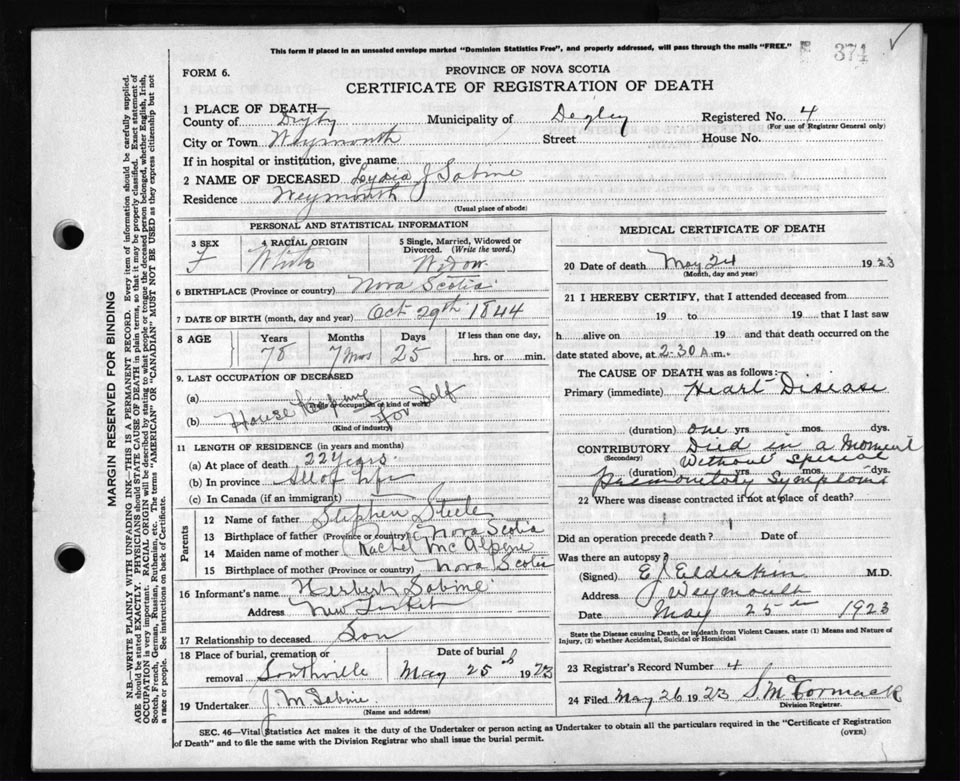 This form if placed in an unsealed envelope marked "Dominion Statistics Free", and properly addressed, will pass through the mails "FREE."
371
FORM 6.
PROVINCE OF NOVA SCOTIA
CERTIFICATE OF REGISTRATION OF DEATH
1 PLACE OF DEATH—
County of Digby Municipality of Digby Registered No. 4
(For use of Registrar General only)
City or Town Weymouth Street House No.
If in hospital or institution, give name
2 NAME OF DECEASED Lydia J Sabine
Residence Weymouth
(Usual place of abode)
MARGIN RESERVED FOR BINDING
N.B.—WRITE PLAINLY WITH UNFADING INK—THIS IS A PERMANENT RECORD. Every item of information should be carefully supplied.
AGE should be stated EXACTLY. PHYSICIANS should STATE CAUSE OF DEATH in plain terms, so that it may be properly classified. Exact statement of
OCCUPATION is very important. RACIAL ORIGIN will be described by stating to what people or tongue the deceased person belonged, whether English, Irish,
Scotch, French, German, Russian, Ruthenian, etc. The terms "AMERICAN" or "CANADIAN" MUST NOT BE USED as they express citizenship but not
a race or people. See instructions on back of Certificate.
PERSONAL AND STATISTICAL INFORMATION
3 SEX 4 RACIAL ORIGIN 5 Single, Married, Widowed or
Divorced. (Write the word.)
F White Widow
6 BIRTHPLACE (Province or country) Nova Scotia
7 DATE OF BIRTH (month, day and year) Oct 29th 1844
8 AGE Years Months Days If less than one day,
78 7 mos 25 hrs. or min.
9. LAST OCCUPATION OF DECEASED
(a)
(Trade or occupation or kind of work)
(b) House for Self
(Kind of industry)
11 LENGTH OF RESIDENCE (in years and months)
(a) At place of death 22 Years
(b) In province All of Life
(c) In Canada (if an immigrant)
Parents
12 Name of father Stephen Steele
13 Birthplace of father (Province or country) Nova Scotia
14 Maiden name of mother Rachel McAlpine
15 Birthplace of mother (Province or country) Nova Scotia
16 Informant's name Herbert Sabine
Address New Tusket
17 Relationship to deceased Son
18 Place of burial, cremation or Date of burial
removal Southville May 25th 1923
19 Undertaker J. M Sabine
(Name and address)
MEDICAL CERTIFICATE OF DEATH
20 Date of death May 24 1923
(Month, day and year)
21 I HEREBY CERTIFY, that I attended deceased from
19 to 19 that I last saw
h alive on 19 and that death occurred on the
date stated above, at 2-30 A.m.
The CAUSE OF DEATH was as follows:
Primary (immediate) Heart Disease
(duration) one yrs mos. dys.
CONTRIBUTORY Died in a Moment
(Secondary) Without special
(duration) yrs mos. dys.
premonitory symptoms
22 Where was disease contracted if not at place of death?
Did an operation precede death? Date of
Was there an autopsy?
(Signed) E J Elderkin M.D.
Address Weymouth
Date May 25th 1923
State the Disease causing Death, or in death from Violent Causes, state (1) Means and Nature of
Injury, (2) whether Accidental, Suicidal or Homicidal
23 Registrar's Record Number 4
24 Filed May 26 1923 S. McCormack
Division Registrar.
SEC. 46—Vital Statistics Act makes it the duty of the Undertaker or person acting as Undertaker to obtain all the particulars required in the "Certificate of Registration
of Death" and to file the same with the Division Registrar who shall issue the burial permit.
(OVER)